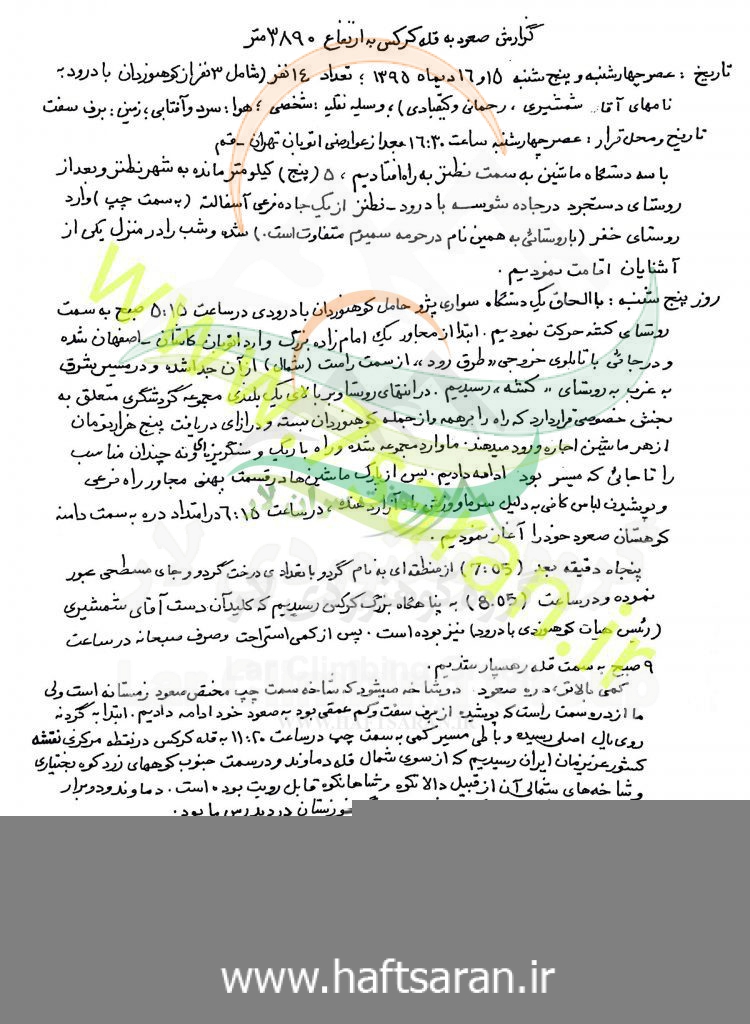 گزارش صعود به قله کرکس به ارتفاع ۳۸۹۰ متر
تاریخ : عصر چهارشنبه و پنج شنبه ۱۵ و ۱۶ دیماه ۱۳۹۵ ؛ تعداد ۱۴ نفر (شامل ۳ نفر از کوهنوردان بادرود به
نامهای آقای شمشیری ، رحمانی و کیقبادی) ؛ وسیله نقلیه : شخصی ؛ هوا : سرد و آفتابی ؛ زمین : برف سفت
تاریخ و محل قرار : عصر چهارشنبه ساعت ۱۶:۳۰ بعد از عوارضی اتوبان تهران - قم
با سه دستگاه ماشین به سمت نطنز به راه افتادیم ، ۵ (پنج) کیلومتر مانده به شهر نطنز و بعد از
روستای دستجرد در جاده شوسه بادرود - نطنز از یک جاده فرعی آسفالته (به سمت چپ) وارد
روستای خفر (با روستائی به همین نام در حومه سمیرم متفاوت است.) شده و شب را در منزل یکی از
آشنایان اقامت نمودیم .
روز پنج شنبه : با الحاق یک دستگاه سواری پژو حامل کوهنوردان بادرودی در ساعت ۵:۱۵ صبح به سمت
روستای کشه حرکت نمودیم . ابتدا از مجاور یک امام زاده بزرگ وارد اتوبان کاشان - اصفهان شده
و در جائی با تابلوی خروجی «طرق رود» ، از سمت راست (شمال) از آن جدا شده و در مسیر شرق
به غرب به روستای «کشه» رسیدیم . در انتهای روستا و بر بالای یک بلندی مجموعه گردشگری متعلق به
بخش خصوصی قرار دارد که راه را بر همه و از جمله کوهنوردان بسته و در ازای دریافت پنج هزار تومان
از هر ماشین اجازه ورود میدهند . ما وارد مجموعه شده و راه با ریگ و سنگریزه‌ای و نه چندان مناسب
را تا جائی که میسر بود ادامه دادیم . پس از پارک ماشین‌ها در قسمت پهنی مجاور راه فرعی
و پوشیدن لباس کافی به دلیل سرما و وزش باد ، در ساعت ۶:۱۵ در امتداد دره به سمت دامنه
کوهستان صعود خود را آغاز نمودیم .
پنجاه دقیقه بعد (7:05) از منطقه ای به نام گردو با تعدادی درخت گردو و جای مسطحی عبور
نموده و در ساعت (8.05) به پناهگاه بزرگ کرکس رسیدیم که کلید آن دست آقای شمشیری
(رئیس هیات کوهنوردی بادرود) نیز بوده است . پس از کمی استراحت و صرف صبحانه در ساعت
۹ صبح به سمت قله رهسپار شدیم .
کمی بالاتر ، دره صعود دو شاخه میشود که شاخه سمت چپ مختص صعود زمستانه است ولی
ما از دره سمت راست که پوشیده از برف سفت و کم عمقی بود به صعود خود ادامه دادیم . ابتدا به گردنه
روی یال اصلی رسیده و با طی مسیر کمی به سمت چپ در ساعت ۱۱:۲۰ به قله کرکس در نقطه مرکزی نقشه
کشور عزیزمان ایران رسیدیم که از سوی شمال قله دماوند و در سمت جنوب کوههای زرد کوه بختیاری
و شاخه‌های شمالی آن از قبیل دالانکوه و شاهانکوه قابل رویت بوده است . دماوند و دوبرار
خوزستان در دید رس ما بود .
www.7saran.ir
Lar Climbing Group
WWW.HAFTSARAN.IR
www.haftsaran.ir